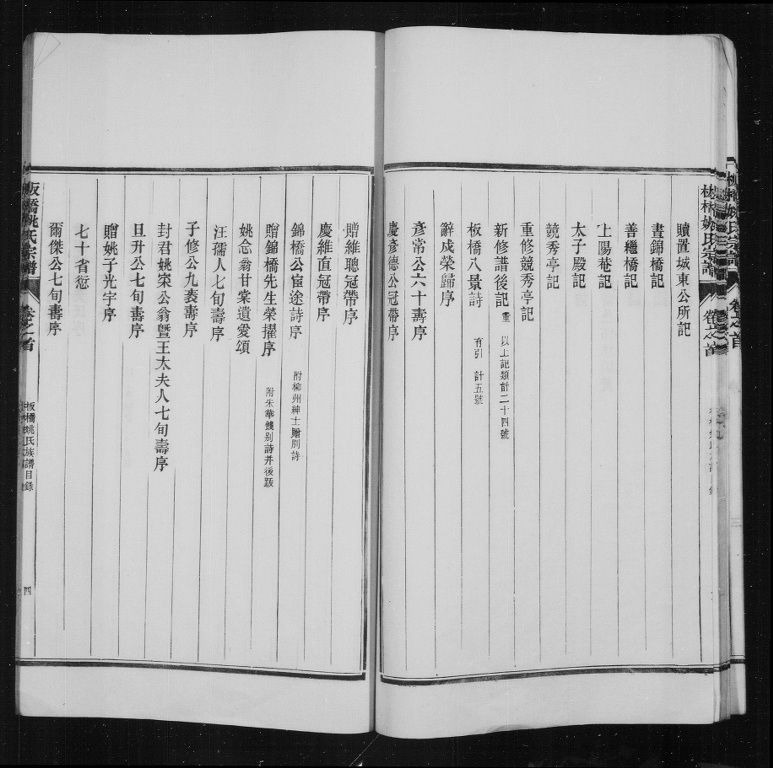 贖置城東公所記
晝錦橋記
善繼橋記
上陽菴記
太子殿記
競秀亭記
重修競秀亭記
新修譜後記 以上記類計二十四號
板橋八景詩 有引 計五號
辭成榮歸序
彥常公六十壽序
慶彥德公冠帶序
贈維聰冠帶序
慶維直冠帶序
錦橋公宦途詩序 附柳州紳士贈別詩
贈錦橋先生榮擢序 附朱華餞別詩并後跋
姚念翁甘棠遺愛頌
汪孺人七旬壽序
子修公九袠壽序
封君姚榮公翁暨王太夫人七旬壽序
旦升公七旬壽序
贈姚子光宇序
七十省愆
爾傑公七旬壽序
板橋姚氏宗譜 卷之首 板橋姚氏族譜目錄 四